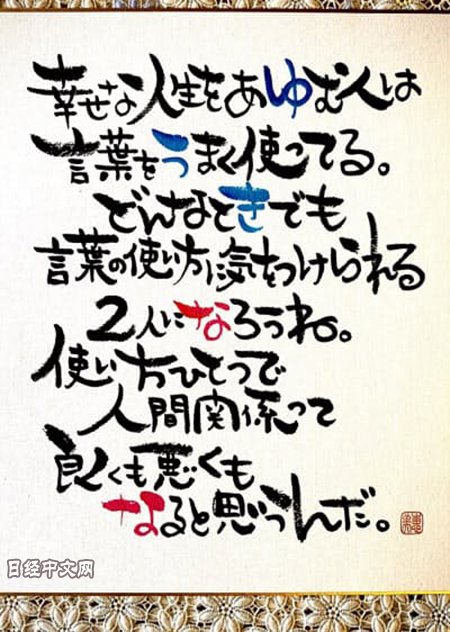 幸せな人生をあゆむ人は
言葉をうまく使ってる。
どんなときでも
言葉の使い方に気をつけられる
2人になろうね。
使い方ひとつで
人間関係って
良くも悪くも
なると思うんだ。
日经中文网